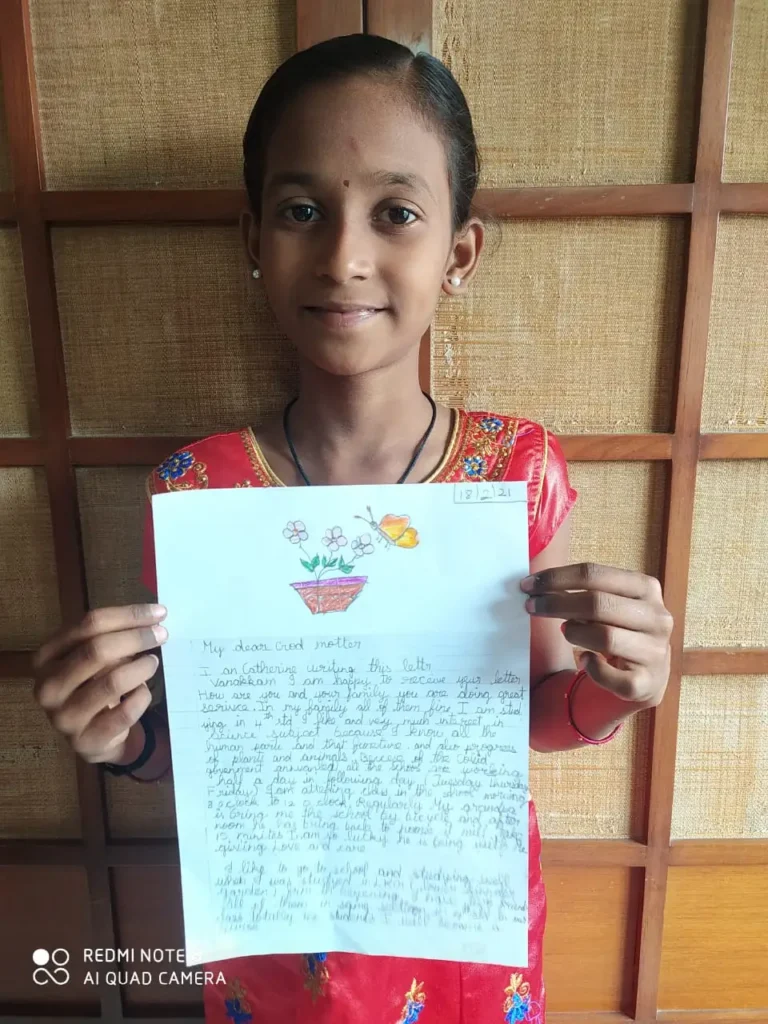 18/2/21
My dear Grod motter
I an Catherine writing this lettr
Vanakkam I am happy to receive your letter
How are you and your family you are doing great
sarivce. In my family all of them fine I am stud
ying in 4th std I like and very much interest in
science subject because I know all the
human parts and that function and also progress
of plants and animals. Becase of the Covid
government annuanced all the school are working
half a day in following day (Tuesday
Friday) I am atteding class in the school morning
8 o'clock to 12 o clock. Regularly My grandpa
is bring me the school by bicycle and after
noon he has bring back to home it will take
15 minutes I am so lucky he is being with me
giving Love and care
I like to go to school and studying well
when I was studied in LKG (lower
garden)
all of them in
class totally students I will become a
nurse
REDMI NOTE
AI QUAD CAMERA